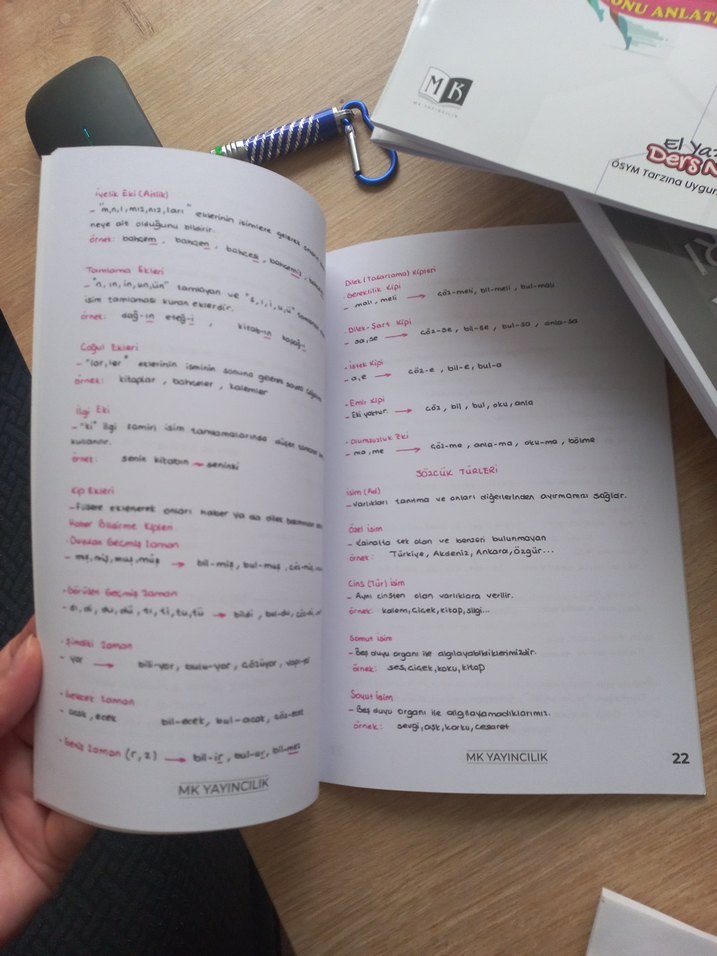 İyelik Eki (Aitlik)
- "m,n,ı, mız,nız, ları" eklerinin isimlere gelerek onların
neye ait olduğunu bildirir.
örnek: bahçem, bahçen, bahçesi, bahçemiz,
Tamlama Ekleri
- "n, ın, in, un, ün" tamlayan ve "s, ı, i, u, ü"
isim tamlaması kuran eklerdir.
örnek: dağ-ın eteğ-i, kitab-ın kapağı
Çoğul Ekleri
- "lar, ler" eklerinin isminin sonuna gelerek sayıca
örnek: kitaplar, bahçeler, kalemler
İlgi Eki
- "ki" ilgi zamiri isim tamlamalarında düşen
kullanılır.
örnek: senin kitabın → seninki
Kip Ekleri
- Fiillere eklenerek onları haber ya da dilek
Haber Bildirme Kipleri
· Duyulan Geçmiş Zaman
- mış, miş, muş, müş → bil-miş, bul-muş,
· Görülen Geçmiş Zaman
- dı, di, du, dü, tı, ti, tu, tü → bildi, bul-du,
· Şimdiki Zaman
- yor → bili-yor, bulu-yor, gözüyor,
· Gelecek Zaman
- acak, ecek bil-ecek, bul-acak,
· Geniş Zaman (r, z) → bil-ir, bul-ur, bil-mez
MK YAYINCILIK
Dilek (Tasarlama) Kipleri
· Gereklilik Kipi
- malı, meli → göz-meli, bil-meli, bul-malı
· Dilek-Şart Kipi
- sa, se → göz-se, bil-se, bul-sa, anla-sa
· İstek Kipi
- a, e → göz-e, bil-e, bul-a
· Emir Kipi
- Eki yoktur. → göz, bil, bul, oku, anla
· Olumsuzluk Eki
- ma, me → göz-me, anla-ma, oku-ma, bölme
SÖZCÜK TÜRLERİ
İsim (Ad)
- Varlıkları tanıtma ve onları diğerlerinden ayırmamızı sağlar.
Özel İsim
- Kainatta tek olan ve benzeri bulunmayan
örnek: Türkiye, Akdeniz, Ankara, Özgür...
Cins (Tür) İsim
- Aynı cinsten olan varlıklara verilir.
örnek: kalem, çiçek, kitap, silgi...
Somut İsim
- Beş duyu organı ile algılayabildiklerimizdir.
örnek: ses, çiçek, koku, kitap
Soyut İsim
- Beş duyu organı ile algılayamadıklarımız.
örnek: sevgi, aşk, korku, cesaret
MK YAYINCILIK
22
ONU ANLAT
MK
MK YAYINCILIK
El Yaz
Ders N
ÖSYM Tarzına Uygun